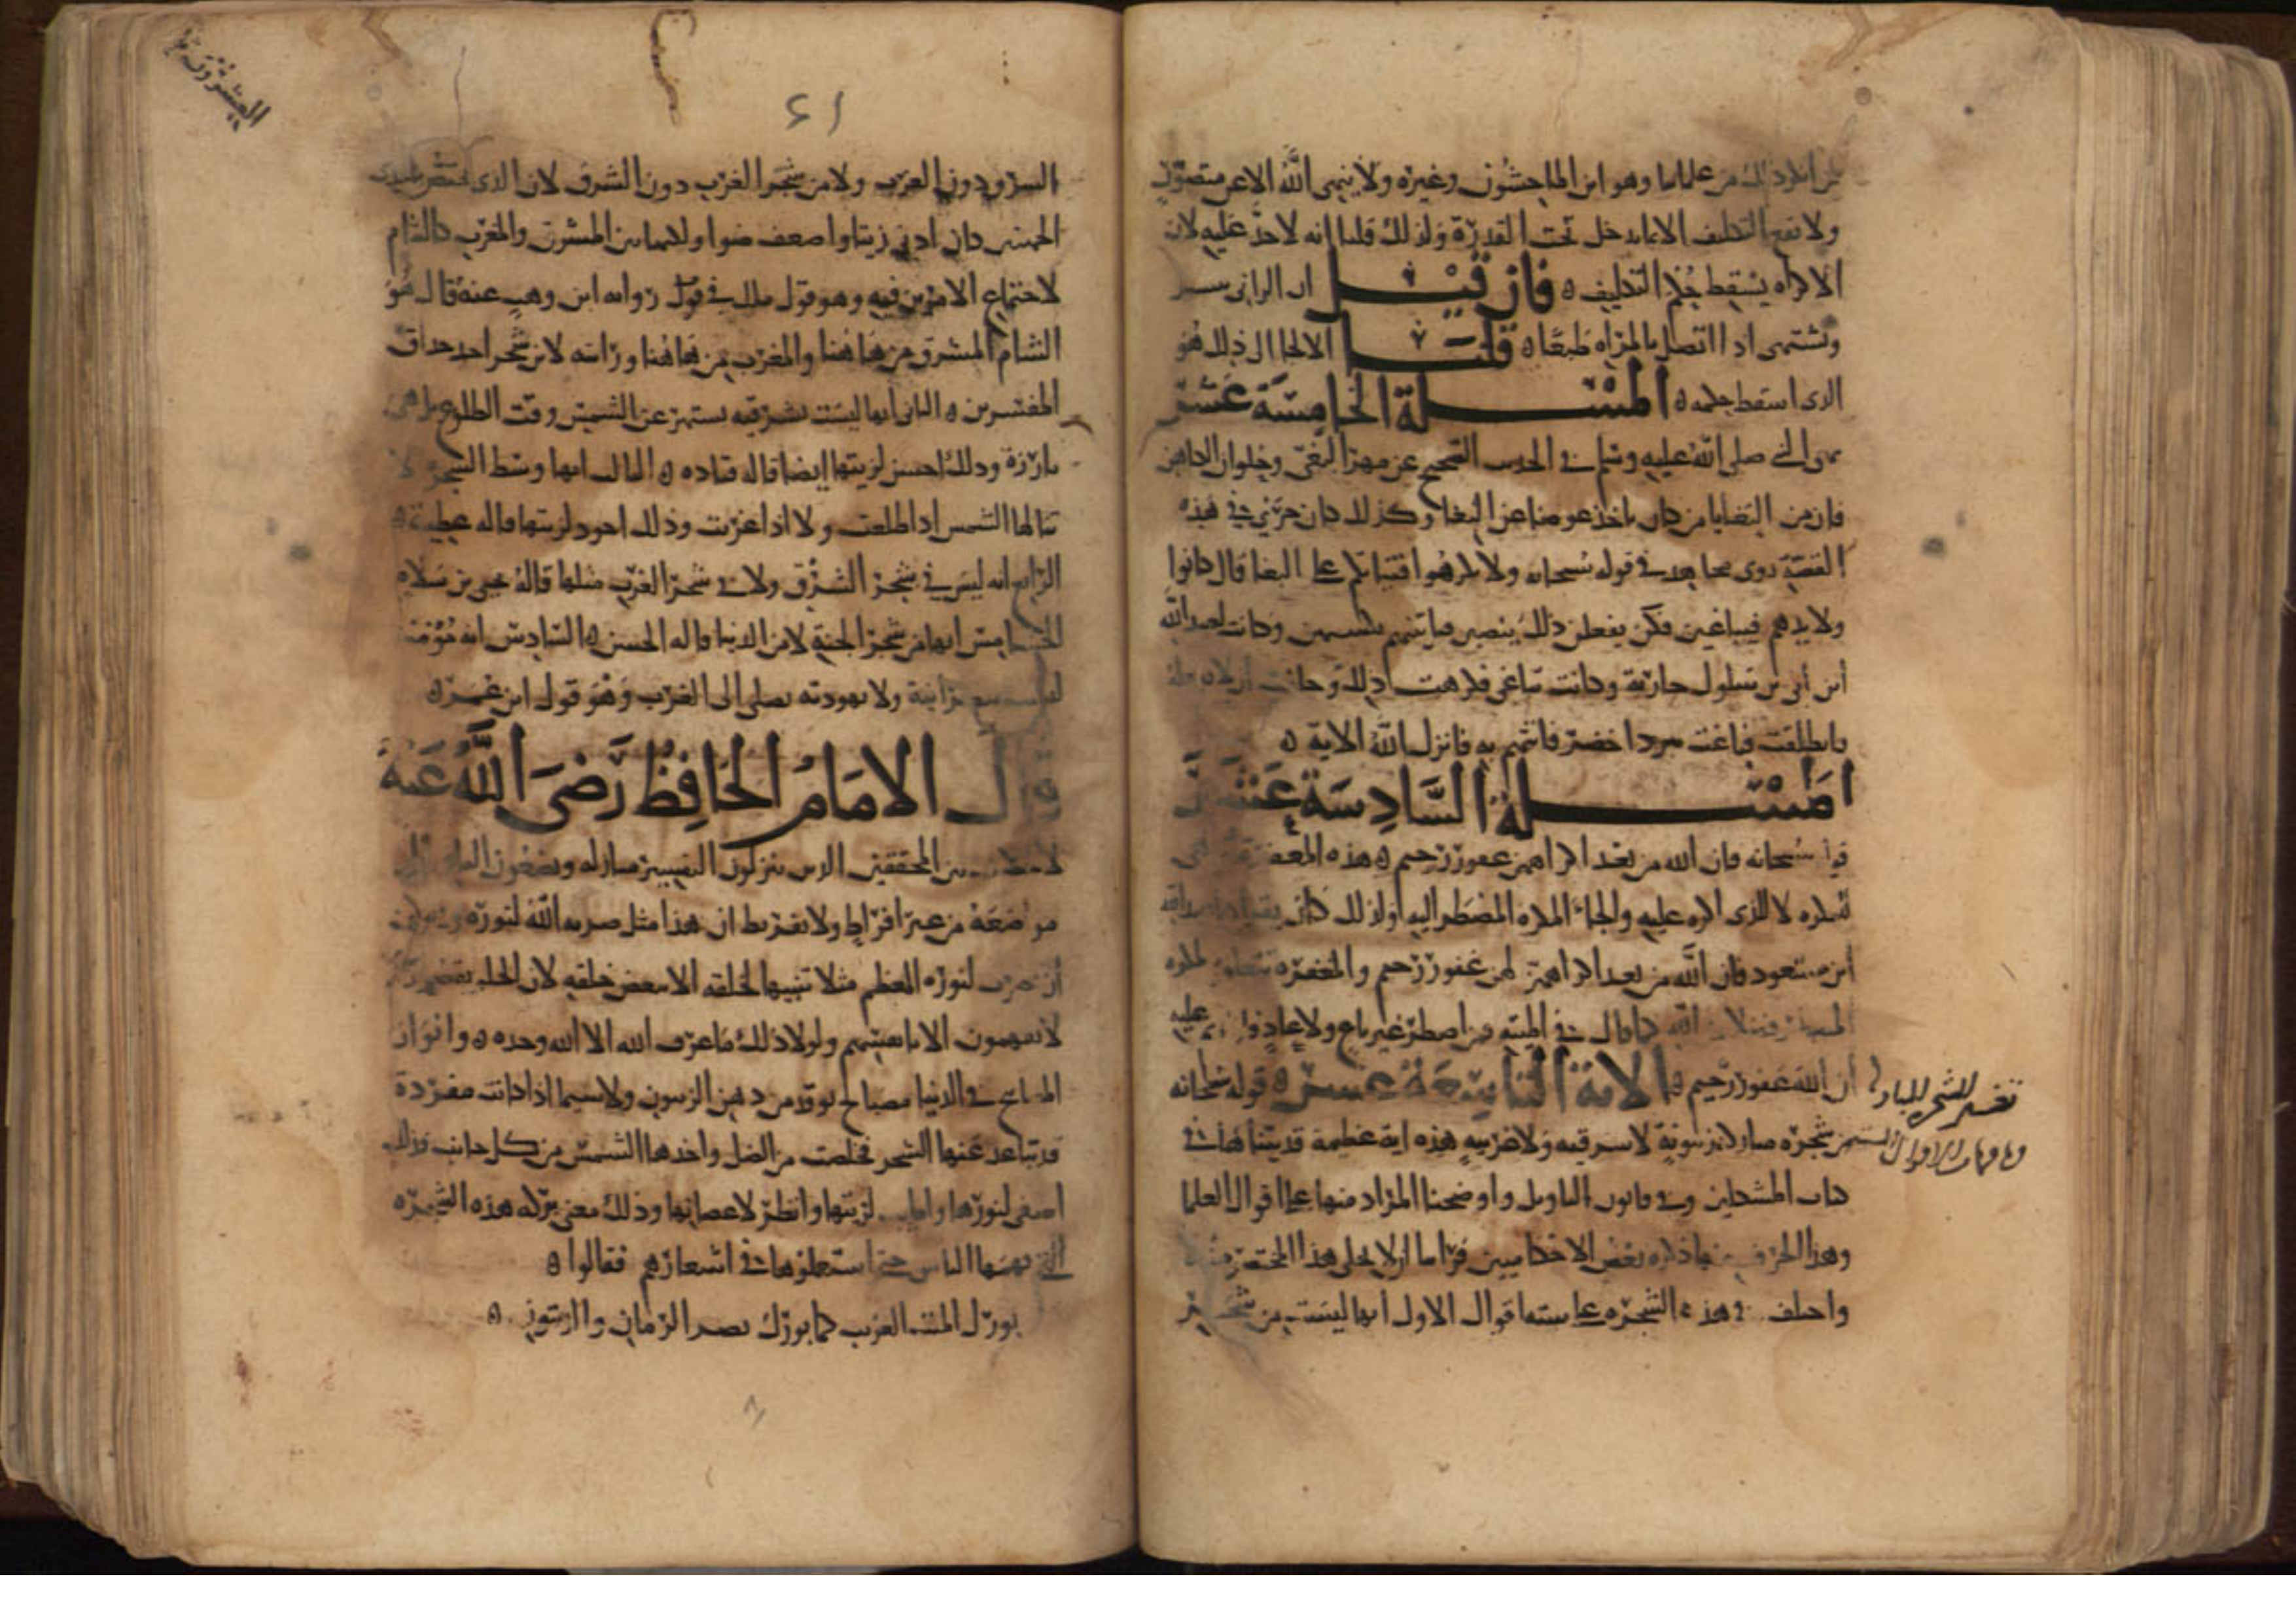 من انكر ذلك من علمائنا وهو ابن الماجشون وغيره ولا ينهى الله الا عن متصور
ولا يقع التكليف الا بما يدخل تحت القدرة ولذلك قلنا انه لا حد عليه لان
الاكراه يسقط حكم التكليف ه فان قيل ان الزاني
ويشتهي اذا اتصل بالمراه طبعا ه قلنا الالجا الى ذلك هو
الذي اسقط حكمه ه المسلة الخامسة عشر
نهى النبي صلى الله عليه وسلم في الحديث الصحيح عن مهر البغي وحلوان الكاهن
فان من البغايا من كان ياخذ عوضا عن البغا وكذلك كان جرى في هذه
القصة روى مجاهد في قوله سبحانه ولا تكرهوا فتياتكم على البغا قال كانوا
ولايدهم فيباغين فكن يفعلن ذلك فيصبن فياتينهم بكسبهن وكانت لعبد الله
ابن أبي بن سلول جارية وكانت تباغي فكرهت ذلك وحلفت ان لا تفعله
فانطلقت فباغت ببرد اخضر فاتتهم به فانزل الله الاية ه
المسلة السادسة عشر
قوله سبحانه فان الله من بعد اكراههن غفور رحيم ه هذه المغفرة
للمكره لا للذي اكره عليه والجا المكره المضطر اليه ولذلك كان يقراها عبد الله
ابن مسعود فان الله من بعد اكراههن لهن غفور رحيم والمغفرة تتعلق بالمكره
المضطر فضلا من الله كما قال في الميتة فمن اضطر غير باغ ولا عاد فلا اثم عليه
ان الله غفور رحيم ه الاية الثامنة عشر ه قوله سبحانه
من شجرة مباركة زيتونة لا شرقية ولا غربية هذه اية عظيمة قد بيناها في
كتاب المشكلين وفي قانون التاويل واوضحنا المراد منها على اقوال العلما
وهذا الحرف منها ذكره بعض الاحكاميين فراينا ان لا نخلي هذا المختصر منها
واختلف في هذه الشجرة على ستة اقوال الاول أنها ليست من شجر
تفسير الشجرة المباركة
وما فيها من الاقوال
٤١
الشرق دون الغرب ولا من شجر الغرب دون الشرق لان الذي يختص باحدى
الجهتين كان ادنى زيتا واضعف ضوا ولكنها بين المشرق والمغرب كالشام
لاجتماع الامرين فيه وهو قول ملك في قول رواه ابن وهب عنه قال هو
الشام المشرق من هاهنا والمغرب من هاهنا ورايته لابن شجرة احد حذاق
المفسرين ه الثاني أنها ليست بشرقيه تستتر عن الشمس وقت الطلوع بل هي
بارزة وذلك احسن لزيتها ايضا قاله قتادة ه الثالث انها وسط الشجر لا
تنالها الشمس اذا طلعت ولا اذا غربت وذلك اجود لزيتها قاله عطية ه
الرابع انه ليس في شجر الشرق ولا في شجر الغرب مثلها قاله يحيى بن سلام
الخامس انها من شجر الجنة لا من الدنيا قاله الحسن ه السادس انه مؤمنة
ليست بنصرانية ولا يهودية تصلي الى الغرب وهو قول ابن عمر ه
قال الامام الحافظ رضي الله عنه
لا خلاف بين المحققين الذين ينزلون التفسير منازله ويضعون التاويل
مواضعه من غير افراط ولا تفريط ان هذا مثل ضربه الله لنوره ولا يمكن
ان يضرب لنوره المعظم مثلا تنبيها لخلقه الا ببعض خلقه لان الخلق بقصورهم
لا يفهمون الا بانفسهم ولولا ذلك ما عرف الله الا الله وحده ه وانوار
المصابيح في الدنيا مصباح يوقد من دهن الزيتون ولا سيما اذا كانت مفردة
قد تباعد عنها الشجر فخلصت من الظل واخذها الشمس من كل جانب فذلك
اصفى لنورها واطيب لزيتها وانضر لاغصانها وذلك معنى بركه هذه الشجرة
التي فهمها الناس حتى استعملوها في اشعارهم فقالوا ه
بورك الميت الغريب كما بورك نضر الرمان والزيتون ه